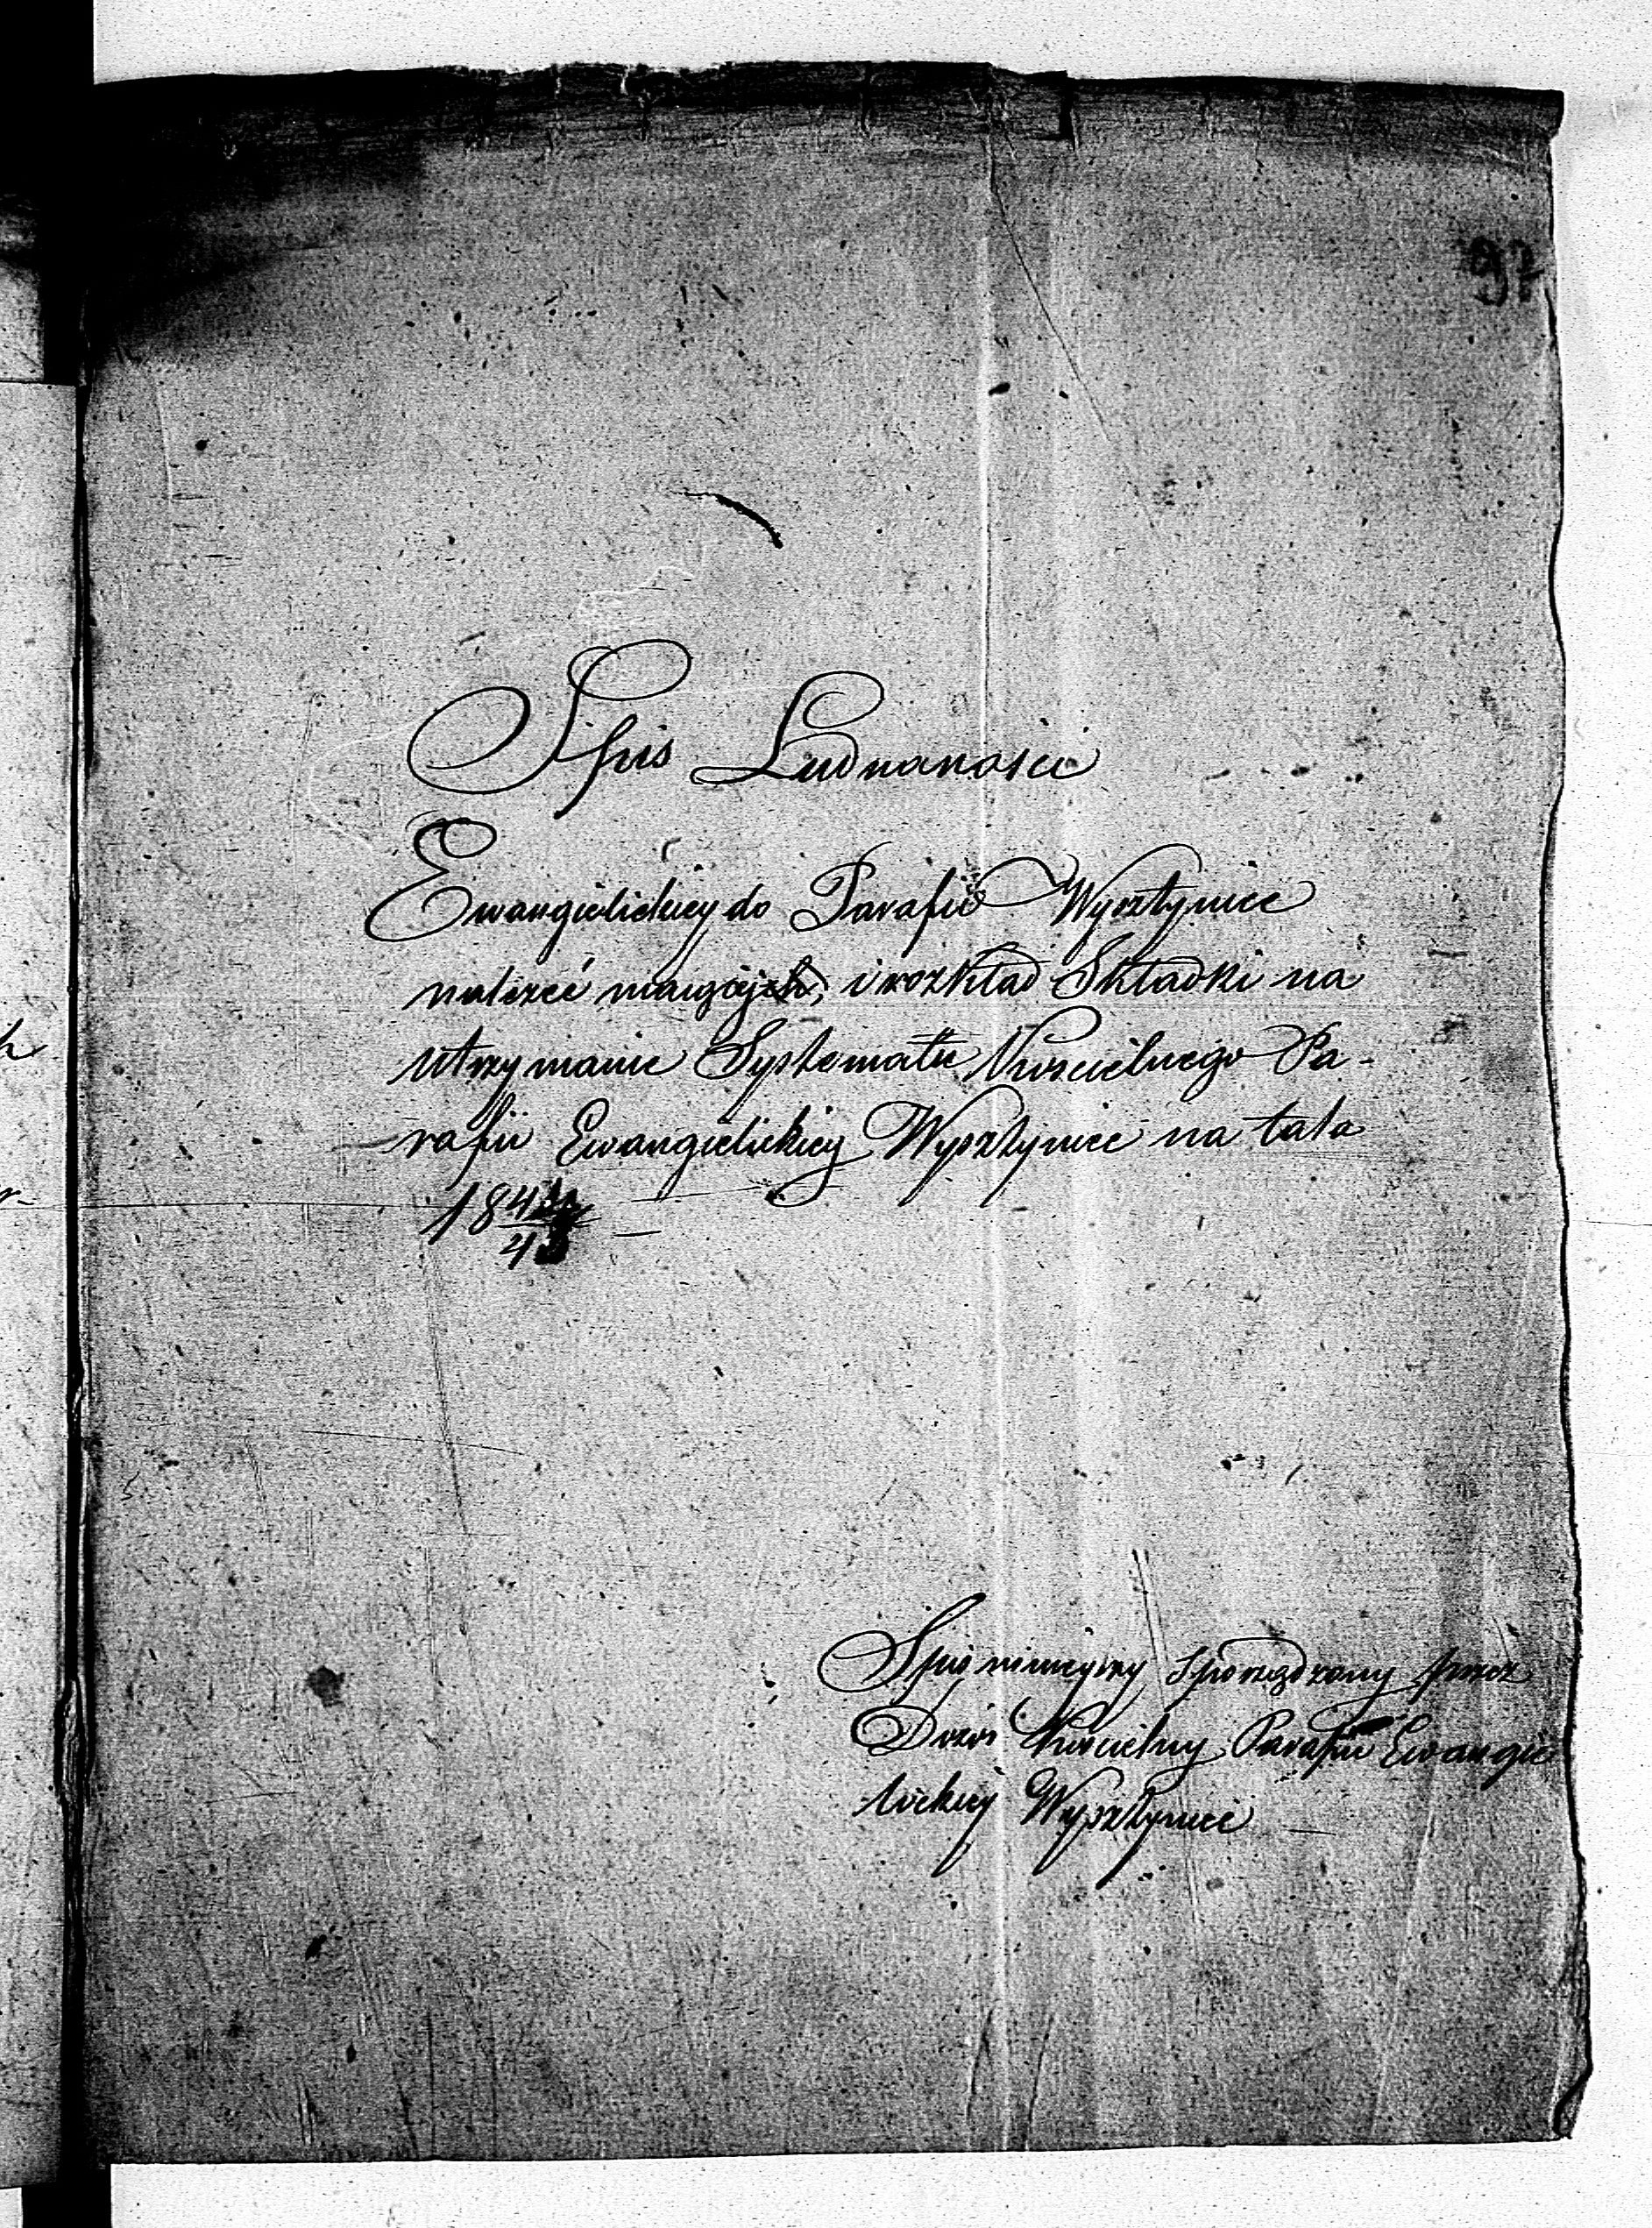 97
Spis Ludnanosci
Ewangielickiey do Parafii Wysztyniec
należeć maiącej, i rozkład Składki na
utrzymanie Systematu Kościelnego Pa-
rafii Ewangielickiey Wysztyniec na lata
18
Spis ninieyszy sporządzony przez
Dozór Kościelny Parafii Ewangie
lickiej Wysztyniec